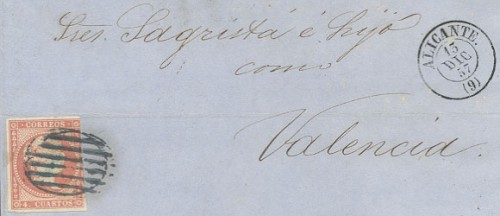 Sres. Sagristá é hijo
como
Valencia.
ALICANTE.
13
DIC
57
(9)
CORREOS
4 CUARTOS